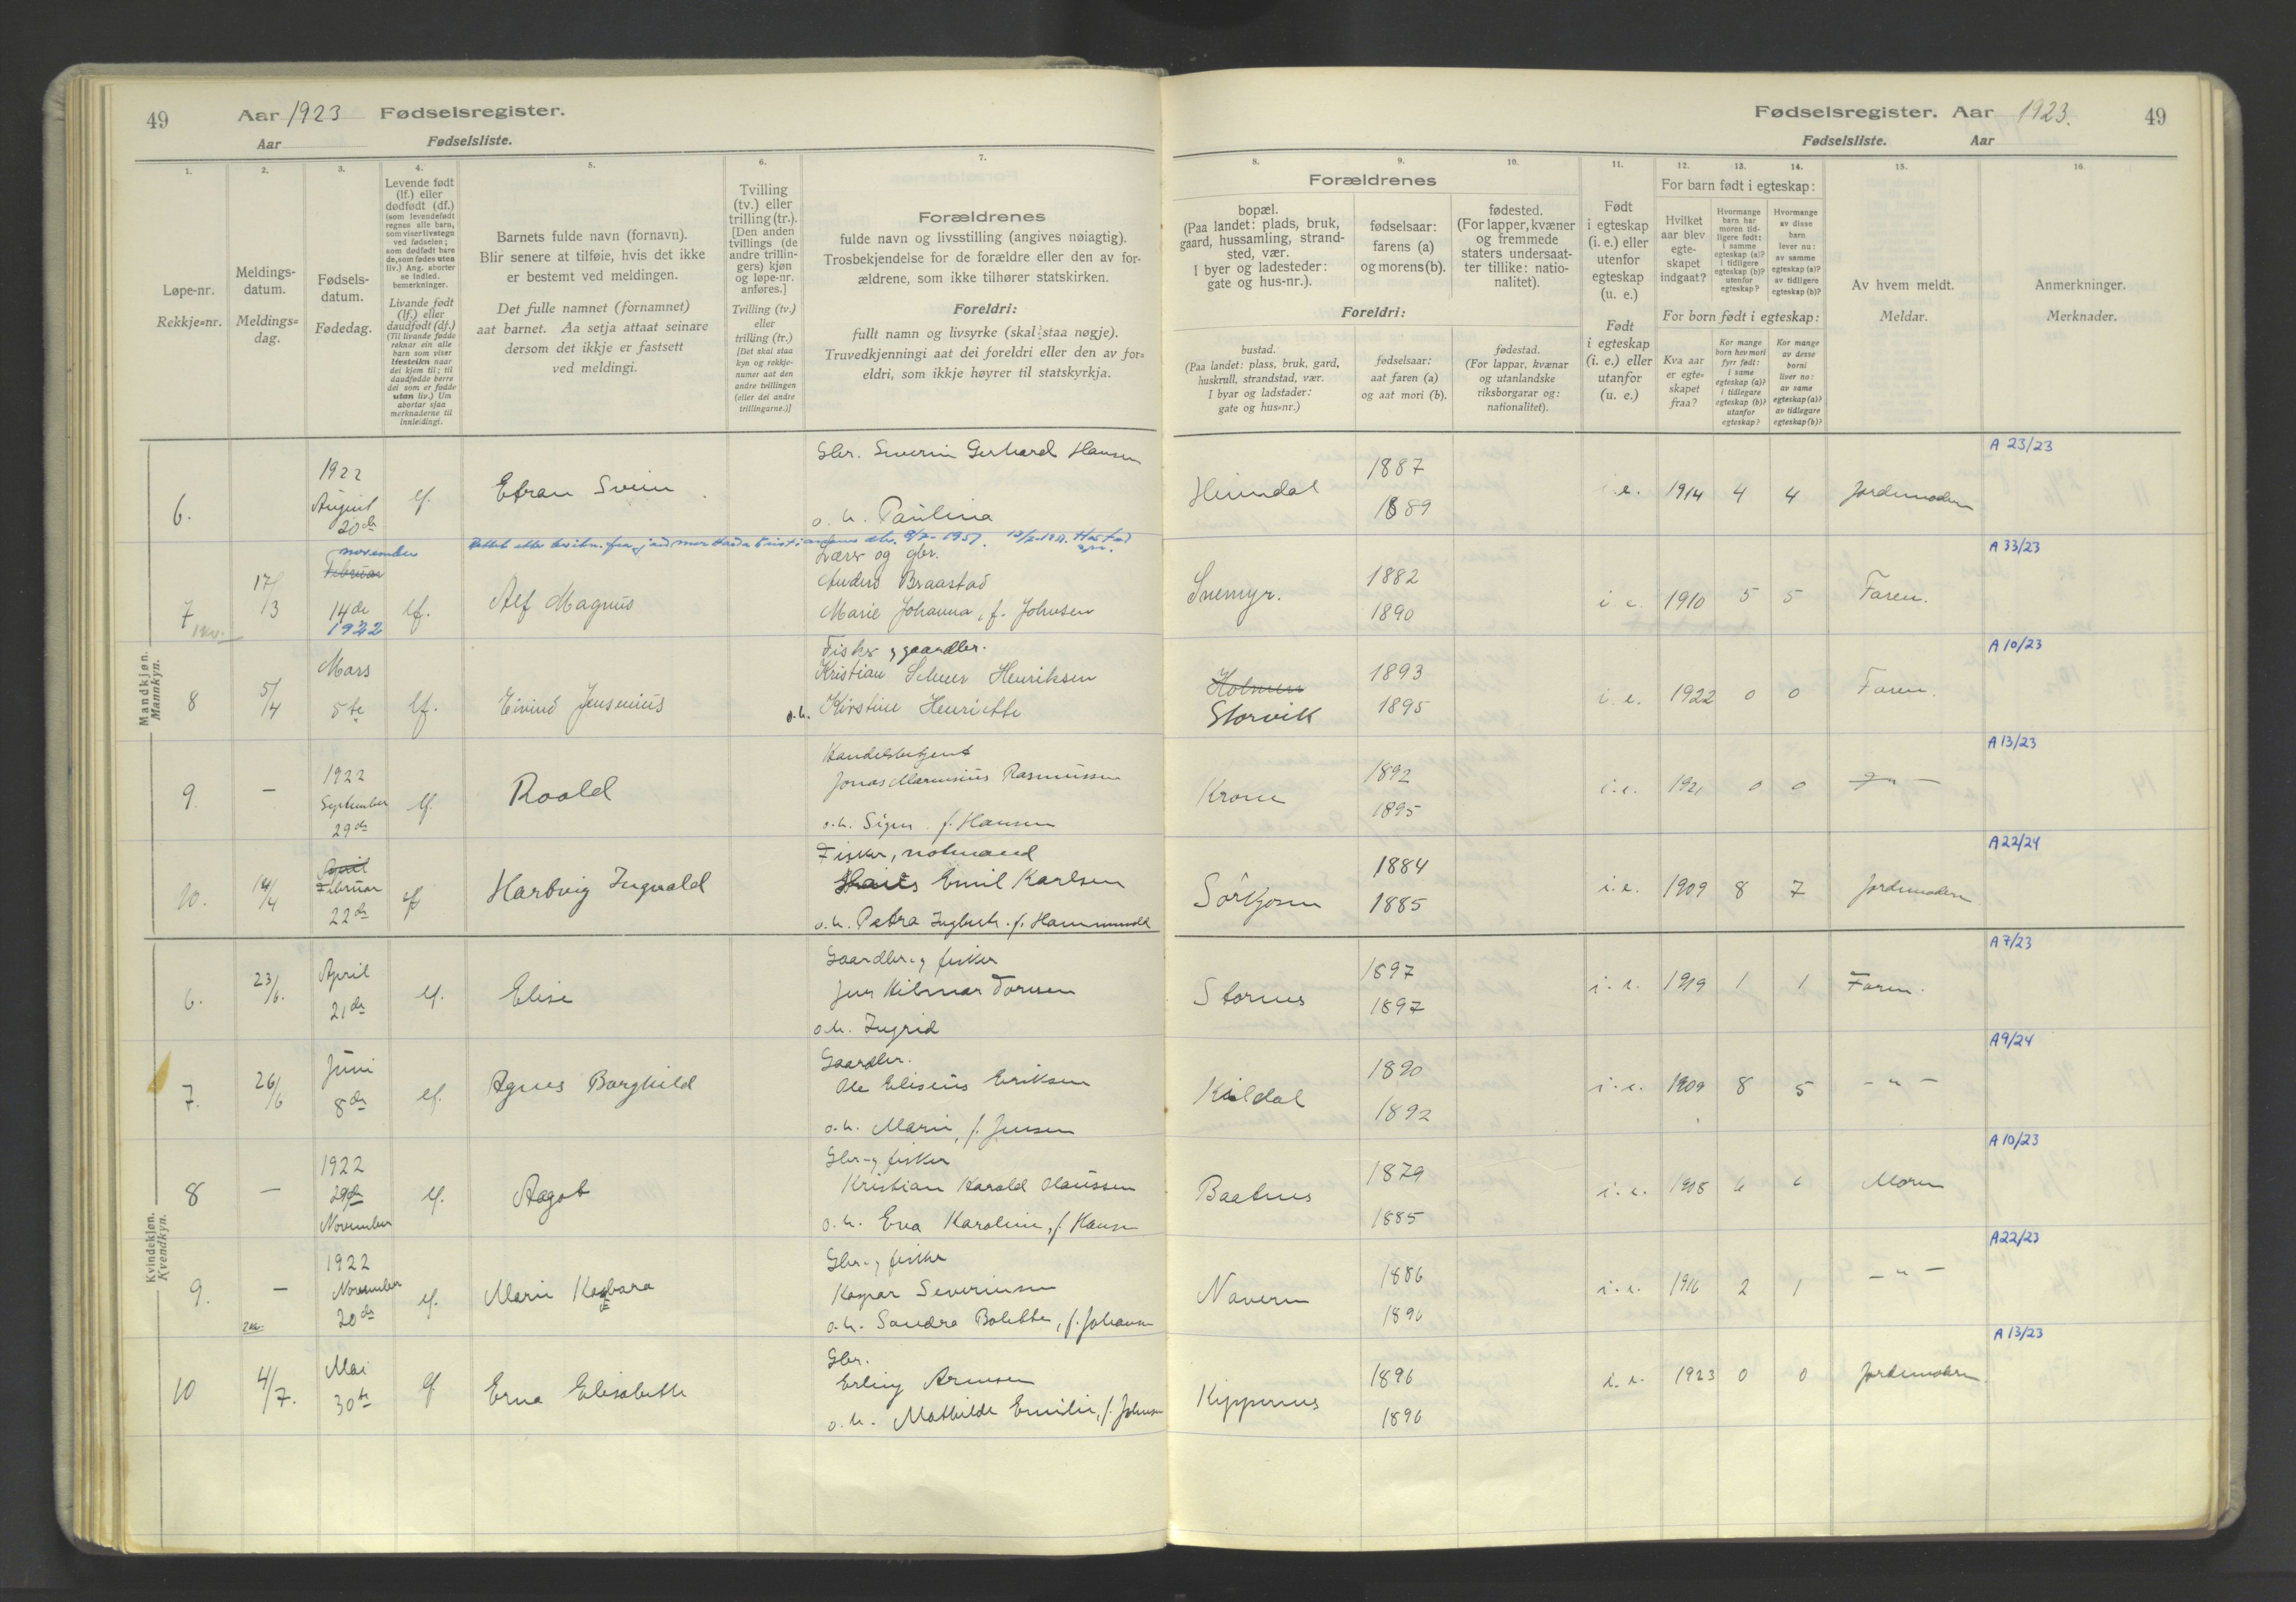 49 Aar 1923 Fødselsregister.
Aar Fødselsliste.
1.
2.
3.
4.
5.
6.
7.
Løpe-nr.
Rekkje=nr.
Meldings-
datum.
Meldings=
dag.
Fødsels-
datum.
Fødedag.
Levende født
(lf.) eller
dødfødt (df.)
(som levendefødt
regnes alle barn,
som viser livstegn
ved fødselen;
som dødfødt bare
de, som fødes uten
liv.) Ang. aborter
se indled.
bemerkninger.
Livande født
(lf.) eller
daudfødt (df.)
(Til livande fødde
reknar ein alle
barn som viser
livsteikn naar
dei kjem til; til
daudfødde berre
dei som er fødde
utan liv.) Um
abortar sjaa
merknaderne til
innleidingi.
Barnets fulde navn (fornavn).
Blir senere at tilføie, hvis det ikke
er bestemt ved meldingen.
Det fulle namnet (fornamnet)
aat barnet. Aa setja attaat seinare
dersom det ikkje er fastsett
ved meldingi.
Tvilling
(tv.) eller
trilling (tr.).
[Den anden
tvillings (de
andre trillin-
gers) kjøn
og løpe-nr.
anføres.]
Tvilling (tv.)
eller
trilling (tr.)
[Det skal staa
kyn og rekkje-
numer aat den
andre tvillingen
(eller dei andre
trillingarne.)]
Forældrenes
fulde navn og livsstilling (angives nøiagtig).
Trosbekjendelse for de forældre eller den av for-
ældrene, som ikke tilhører statskirken.
Foreldri:
fullt namn og livsyrke (skal staa nøgje).
Truvedkjenningi aat dei foreldri eller den av for=
eldri, som ikkje høyrer til statskyrkja.
Fødselsregister. Aar 1923. 49
Fødselsliste. Aar
8.
9.
10.
11.
12.
13.
14.
15.
16.
Forældrenes
bopæl.
(Paa landet: plads, bruk,
gaard, hussamling, strand-
sted, vær.
I byer og ladesteder:
gate og hus-nr.).
fødselsaar:
farens (a)
og morens (b).
fødested.
(For lapper, kvæner
og fremmede
staters undersaat-
ter tillike: natio-
nalitet).
Foreldri:
bustad.
(Paa landet: plass, bruk, gard,
huskrull, strandstad, vær.
I byar og ladstader:
gate og hus=nr.)
fødselsaar:
aat faren (a)
og aat mori (b).
fødestad.
(For lappar, kvænar
og utanlandske
riksborgarar og:
nationalitet).
Født
i egteskap
(i. e.) eller
utenfor
egteskap
(u. e.)
Født
i egteskap
(i. e.) eller
utanfor
(u. e.)
For barn født i egteskap:
Hvilket
aar blev
egte-
skapet
indgaat?
Hvormange
barn har
moren tid-
ligere født:
i samme
egteskap (a)?
i tidligere
egteskap (b)?
utenfor
egteskap?
Hvormange
av disse
barn
lever nu:
av samme
egteskap (a)?
av tidligere
egteskap (b)?
For born født i egteskap:
Kva aar
er egte-
skapet
fraa?
Kor mange
born hev mori
fyrr født:
i same
egteskap (a)?
i tidlegare
egteskap (b)?
utanfor
egteskap?
Kor mange
av desse
borni
liver no:
av same
egteskap (a)?
av tidlegare
egteskap (b)?
Av hvem meldt.
Meldar.
Anmerkninger.
Merknader.
Mandkjøn.
Mannkyn.
A 23/23
6. 1922 August 20de lf. Efran Svein
Gbr. Severin Gerhard Hansen
o. h. Paulina
Heimdal 1887 1889 i. e. 1914 4 4 Jordemoderen
november
A 33/23
7 17/3 Februar 14de 1922 lf. Alf Magnus
Lærer og gbr.
Anders Braastad
Marie Johanna, f. Johnsen
Snemyr. 1882 1890 i. e. 1910 5 5 Faren.
A 10/23
8 5/4 Mars 5te lf. Eivind Jensenius
Fisker og gaardbr.
Kristian Scheer Henriksen
o.h. Kirstine Henriette
Holmen
Storvik 1893 1895 i. e. 1922 0 0 Faren.
A 13/23
9. — 1922 September 29de lf. Roald
Handelsbetjent
Jonas Marensius Rasmussen
o.h. Signe f. Hansen
Krone 1892 1895 i. e. 1921 0 0 — " —
A 22/24
10. 14/4 April Februar 22de lf Hartvig Ingvald
Fisker, notmand
Emil Karlsen
o.h. Petra Ingbertr. f.
Sörkjosen 1884 1885 i. e. 1909 8 7 Jordemoderen.
Kvindekjøn.
Kvendkyn.
A 7/23
6. 23/6. April 21de lf. Elise
Gaardbr. og fisker
Jens Hilmar Toresen
o.h. Ingrid
Stornes 1897 1897 i. e. 1919 1 1 Faren.
A 9/24
7. 26/6 Juni 8de lf. Agnes Borghild
Gaardbr.
Ole Eliseus Eriksen
o.h. Marie, f. Jensen
Kildal 1890 1892 i. e. 1909 8 5 — " —
A 10/23
8 — 1922 29de November lf. Aagot
Gbr. og fisker
Kristian Harald Claussen
o.h. Eva Karoline, f. Hansen
Baatnes 1879 1885 i. e. 1908 6 6 Moren
A 22/23
9. — 1922 November 20de lf. Marie
Gbr. og fisker
Kaspar Severinsen
o.h. Sandra Bolette, f. Johansen
Naveren 1886 1896 i. e. 1916 2 1 — " —
A 13/23
10 4/7. Mai 30te lf Erna Elisabeth
Gbr.
Erling Arnesen
o.h. Mathilde Emilie, f. Johnsen
Kippernes 1896 1896 i. e. 1923 0 0 Jordemoderen.